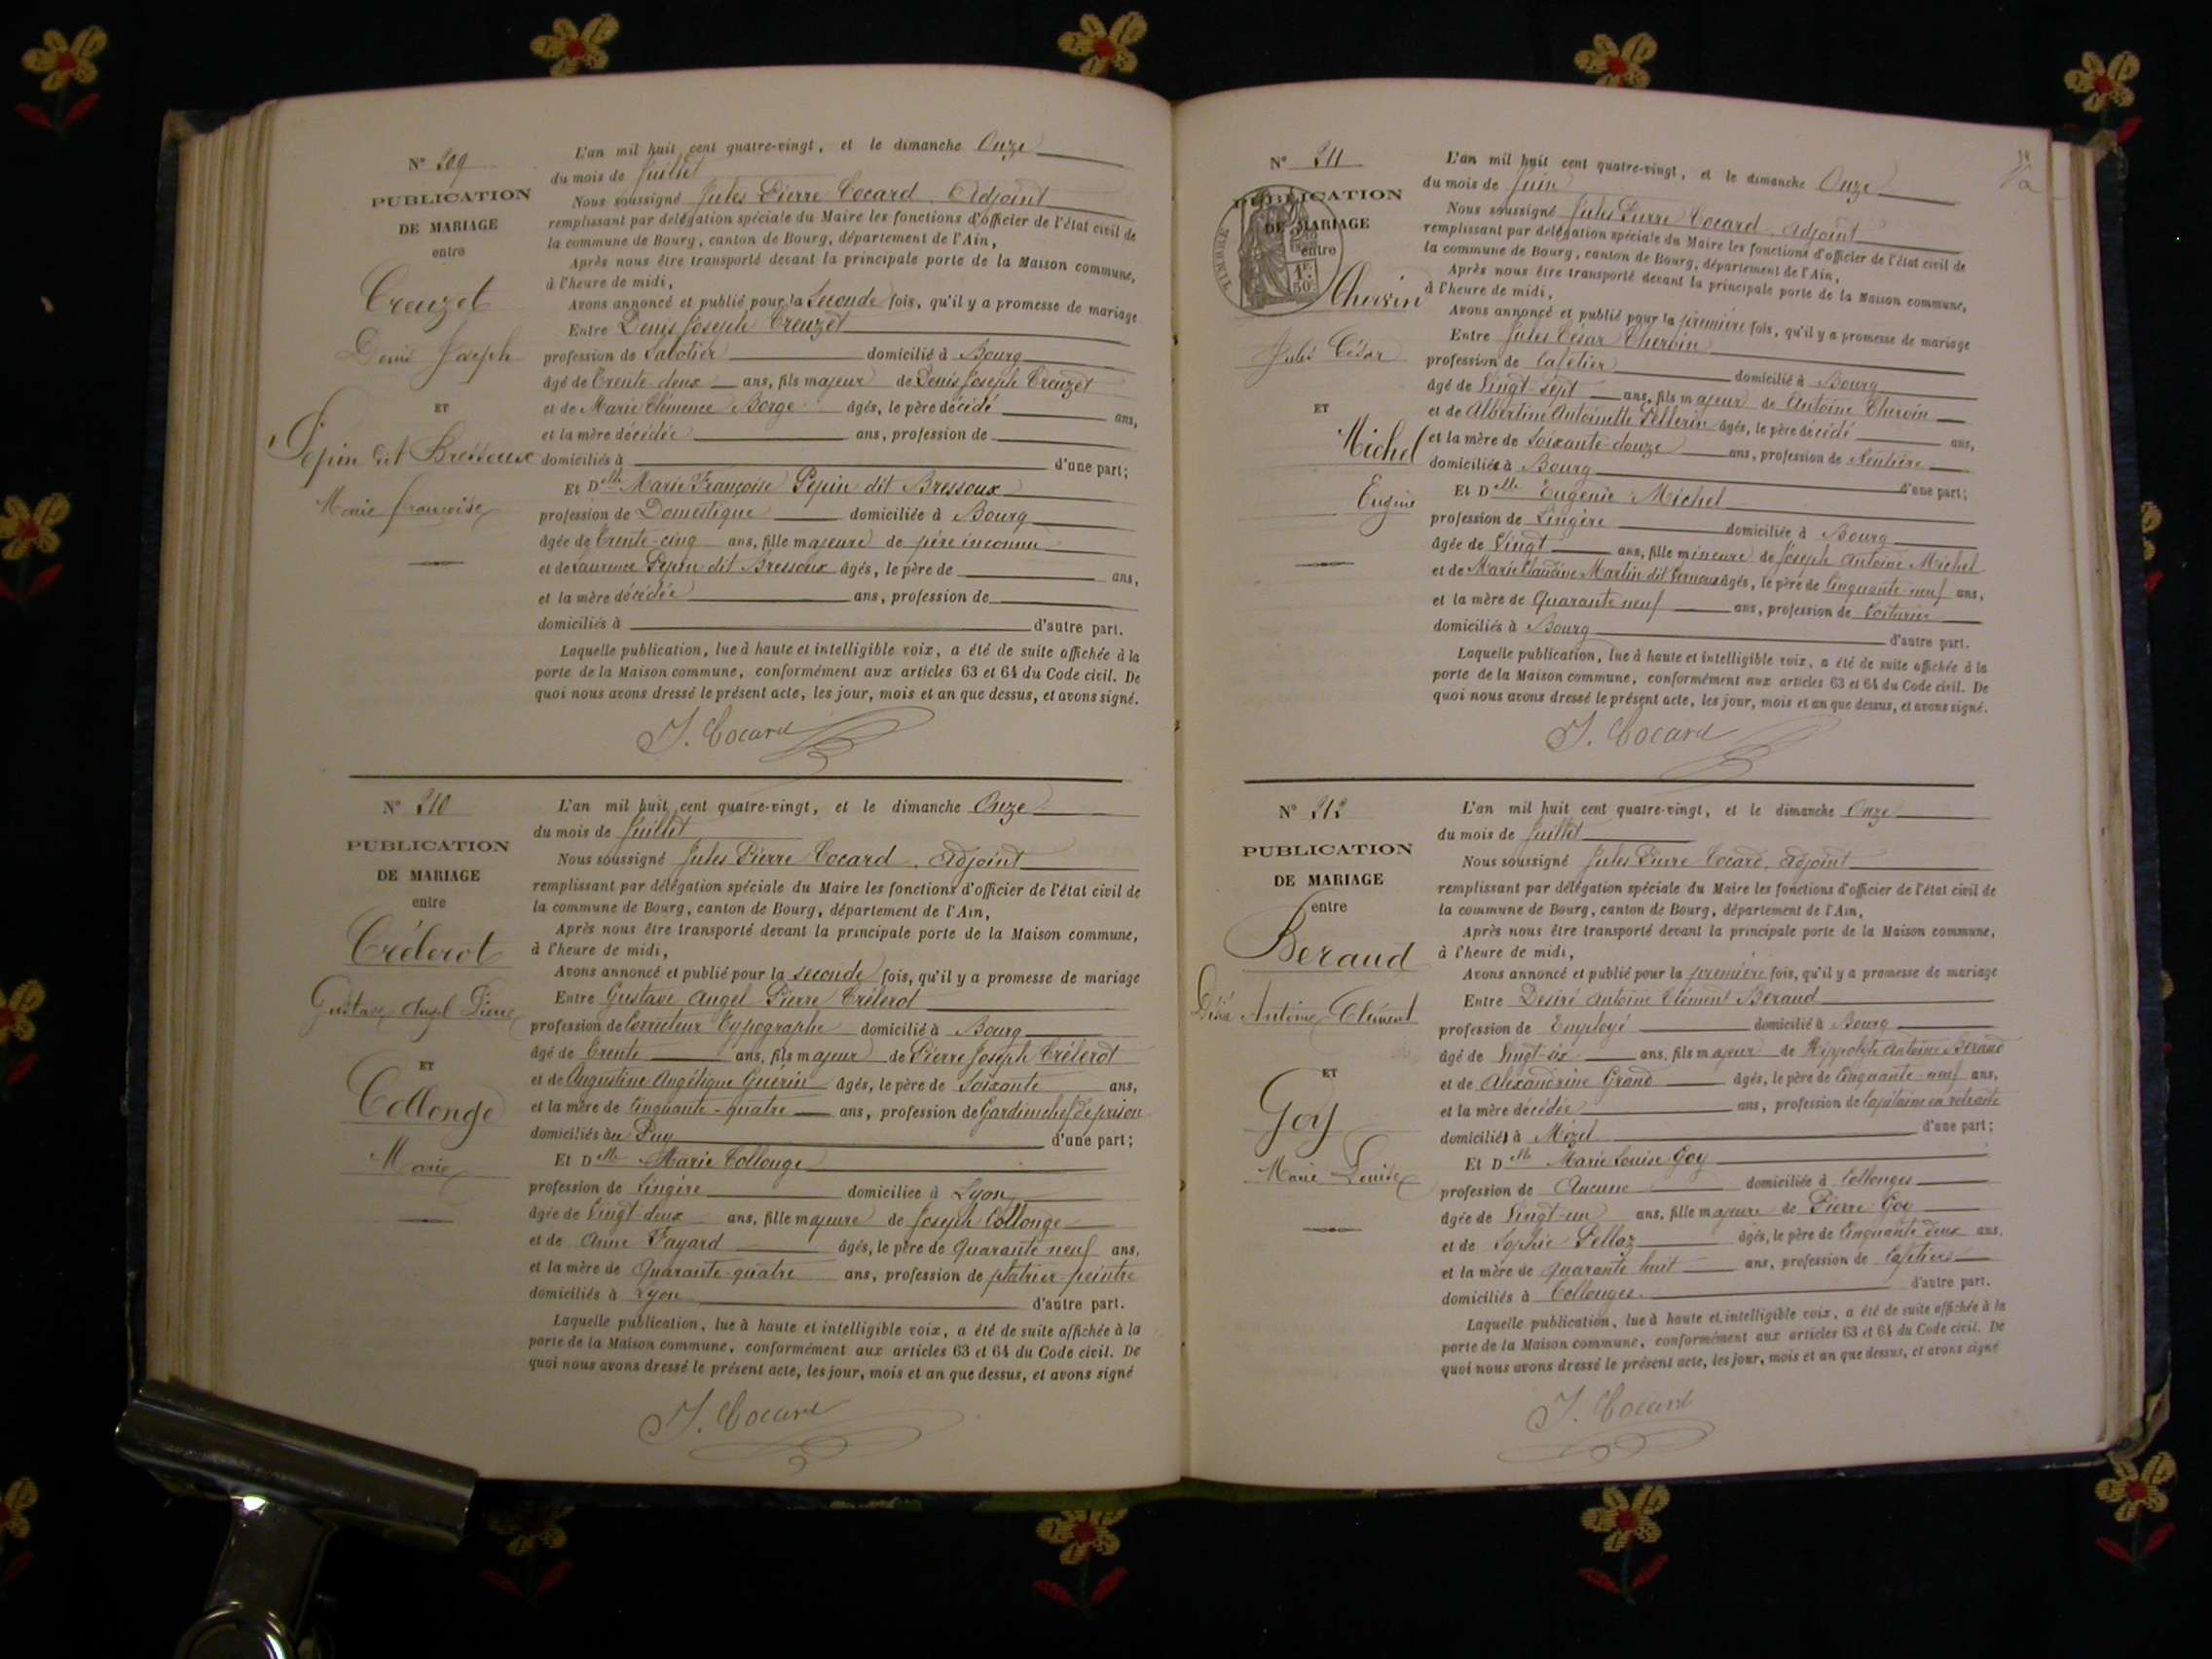 N° 209
PUBLICATION
DE MARIAGE
entre
Creuzet
Denis Joseph
ET
Pepin dit Bressoux
Marie françoise
L'an mil huit cent quatre-vingt, et le dimanche Onze
du mois de Juillet
Nous soussigné Jules Pierre Cocard, Adjoint
remplissant par délégation spéciale du Maire les fonctions d'officier de l'état civil de
la commune de Bourg, canton de Bourg, département de l'Ain,
Après nous être transporté devant la principale porte de la Maison commune,
à l'heure de midi,
Avons annoncé et publié pour la Seconde fois, qu'il y a promesse de mariage
Entre Denis Joseph Creuzet
profession de Sabotier domicilié à Bourg
âgé de Trente deux ans, fils majeur de Denis Joseph Creuzet
et de Marie Clémence Borge âgés, le père décédé ans,
et la mère décédée ans, profession de
domiciliés à d'une part;
Et Delle Marie Françoise Pepin dit Bressoux
profession de Domestique domiciliée à Bourg
âgée de Trente-cinq ans, fille majeure de père inconnu
et de Laurence Pepin dit Bressoux âgés, le père de ans,
et la mère décédée ans, profession de
domiciliés à d'autre part.
Laquelle publication, lue à haute et intelligible voix, a été de suite affichée à la
porte de la Maison commune, conformément aux articles 63 et 64 du Code civil. De
quoi nous avons dressé le présent acte, les jour, mois et an que dessus, et avons signé.
J. Cocard
N° 210
PUBLICATION
DE MARIAGE
entre
Crélerot
Gustave Angel Pierre
ET
Collonge
Marie
L'an mil huit cent quatre-vingt, et le dimanche Onze
du mois de Juillet
Nous soussigné Jules Pierre Cocard, Adjoint
remplissant par délégation spéciale du Maire les fonctions d'officier de l'état civil de
la commune de Bourg, canton de Bourg, département de l'Ain,
Après nous être transporté devant la principale porte de la Maison commune,
à l'heure de midi,
Avons annoncé et publié pour la seconde fois, qu'il y a promesse de mariage
Entre Gustave Angel Pierre Crélerot
profession de Correcteur Typographe domicilié à Bourg
âgé de Trente ans, fils majeur de Pierre Joseph Crélerot
et de Augustine Angélique Guérin âgés, le père de Soixante ans,
et la mère de Cinquante-quatre ans, profession de Gardien chef de prison
domiciliés au Puy d'une part;
Et Delle Marie Collonge
profession de Lingère domiciliée à Lyon
âgée de Vingt-deux ans, fille majeure de Joseph Collonge
et de Anne Fayard âgés, le père de Quarante neuf ans,
et la mère de Quarante-quatre ans, profession de plâtrier-peintre
domiciliés à Lyon d'autre part.
Laquelle publication, lue à haute et intelligible voix, a été de suite affichée à la
porte de la Maison commune, conformément aux articles 63 et 64 du Code civil. De
quoi nous avons dressé le présent acte, les jour, mois et an que dessus, et avons signé
J. Cocard
N° 211
PUBLICATION
DE MARIAGE
entre
TIMBRE
1F.
50c
Chervin
Jules César
ET
Michel
Eugénie
L'an mil huit cent quatre-vingt, et le dimanche Onze
du mois de Juin
Nous soussigné Jules Pierre Cocard, adjoint
remplissant par délégation spéciale du Maire les fonctions d'officier de l'état civil de
la commune de Bourg, canton de Bourg, département de l'Ain,
Après nous être transporté devant la principale porte de la Maison commune,
à l'heure de midi,
Avons annoncé et publié pour la première fois, qu'il y a promesse de mariage
Entre Jules César Chervin
profession de Cafetier domicilié à Bourg
âgé de Vingt-sept ans, fils majeur de Antoine Chervin
et de Albertine Antoinette Pellerin âgés, le père décédé ans,
et la mère de Soixante-douze ans, profession de Rentière
domiciliés à Bourg d'une part;
Et Delle Eugénie Michel
profession de Lingère domiciliée à Bourg
âgée de Vingt ans, fille mineure de Joseph Antoine Michel
et de Marie Claudine Martin dit âgés, le père de Cinquante-neuf ans,
et la mère de Quarante neuf ans, profession de Voiturier
domiciliés à Bourg d'autre part.
Laquelle publication, lue à haute et intelligible voix, a été de suite affichée à la
porte de la Maison commune, conformément aux articles 63 et 64 du Code civil. De
quoi nous avons dressé le présent acte, les jour, mois et an que dessus, et avons signé.
J. Cocard
N° 212
PUBLICATION
DE MARIAGE
entre
Beraud
Désiré Antoine Clément
ET
Goy
Marie Louise
L'an mil huit cent quatre-vingt, et le dimanche Onze
du mois de Juillet
Nous soussigné Jules Pierre Cocard, adjoint
remplissant par délégation spéciale du Maire les fonctions d'officier de l'état civil de
la commune de Bourg, canton de Bourg, département de l'Ain,
Après nous être transporté devant la principale porte de la Maison commune,
à l'heure de midi,
Avons annoncé et publié pour la première fois, qu'il y a promesse de mariage
Entre Desiré Antoine Clément Beraud
profession de Employé domicilié à Bourg
âgé de Vingt-six ans, fils majeur de Hippolyte Antoine Beraud
et de Alexandrine Grand âgés, le père de Cinquante-neuf ans,
et la mère décédée ans, profession de Capitaine en retraite
domiciliés à Mézel d'une part;
Et Delle Marie Louise Goy
profession de Aucune domiciliée à Collonges
âgée de Vingt-un ans, fille majeure de Pierre Goy
et de Sophie Pellaz âgés, le père de Cinquante deux ans,
et la mère de Quarante huit ans, profession de Cafetiers
domiciliés à Collonges d'autre part.
Laquelle publication, lue à haute et intelligible voix, a été de suite affichée à la
porte de la Maison commune, conformément aux articles 63 et 64 du Code civil. De
quoi nous avons dressé le présent acte, les jour, mois et an que dessus, et avons signé
J. Cocard